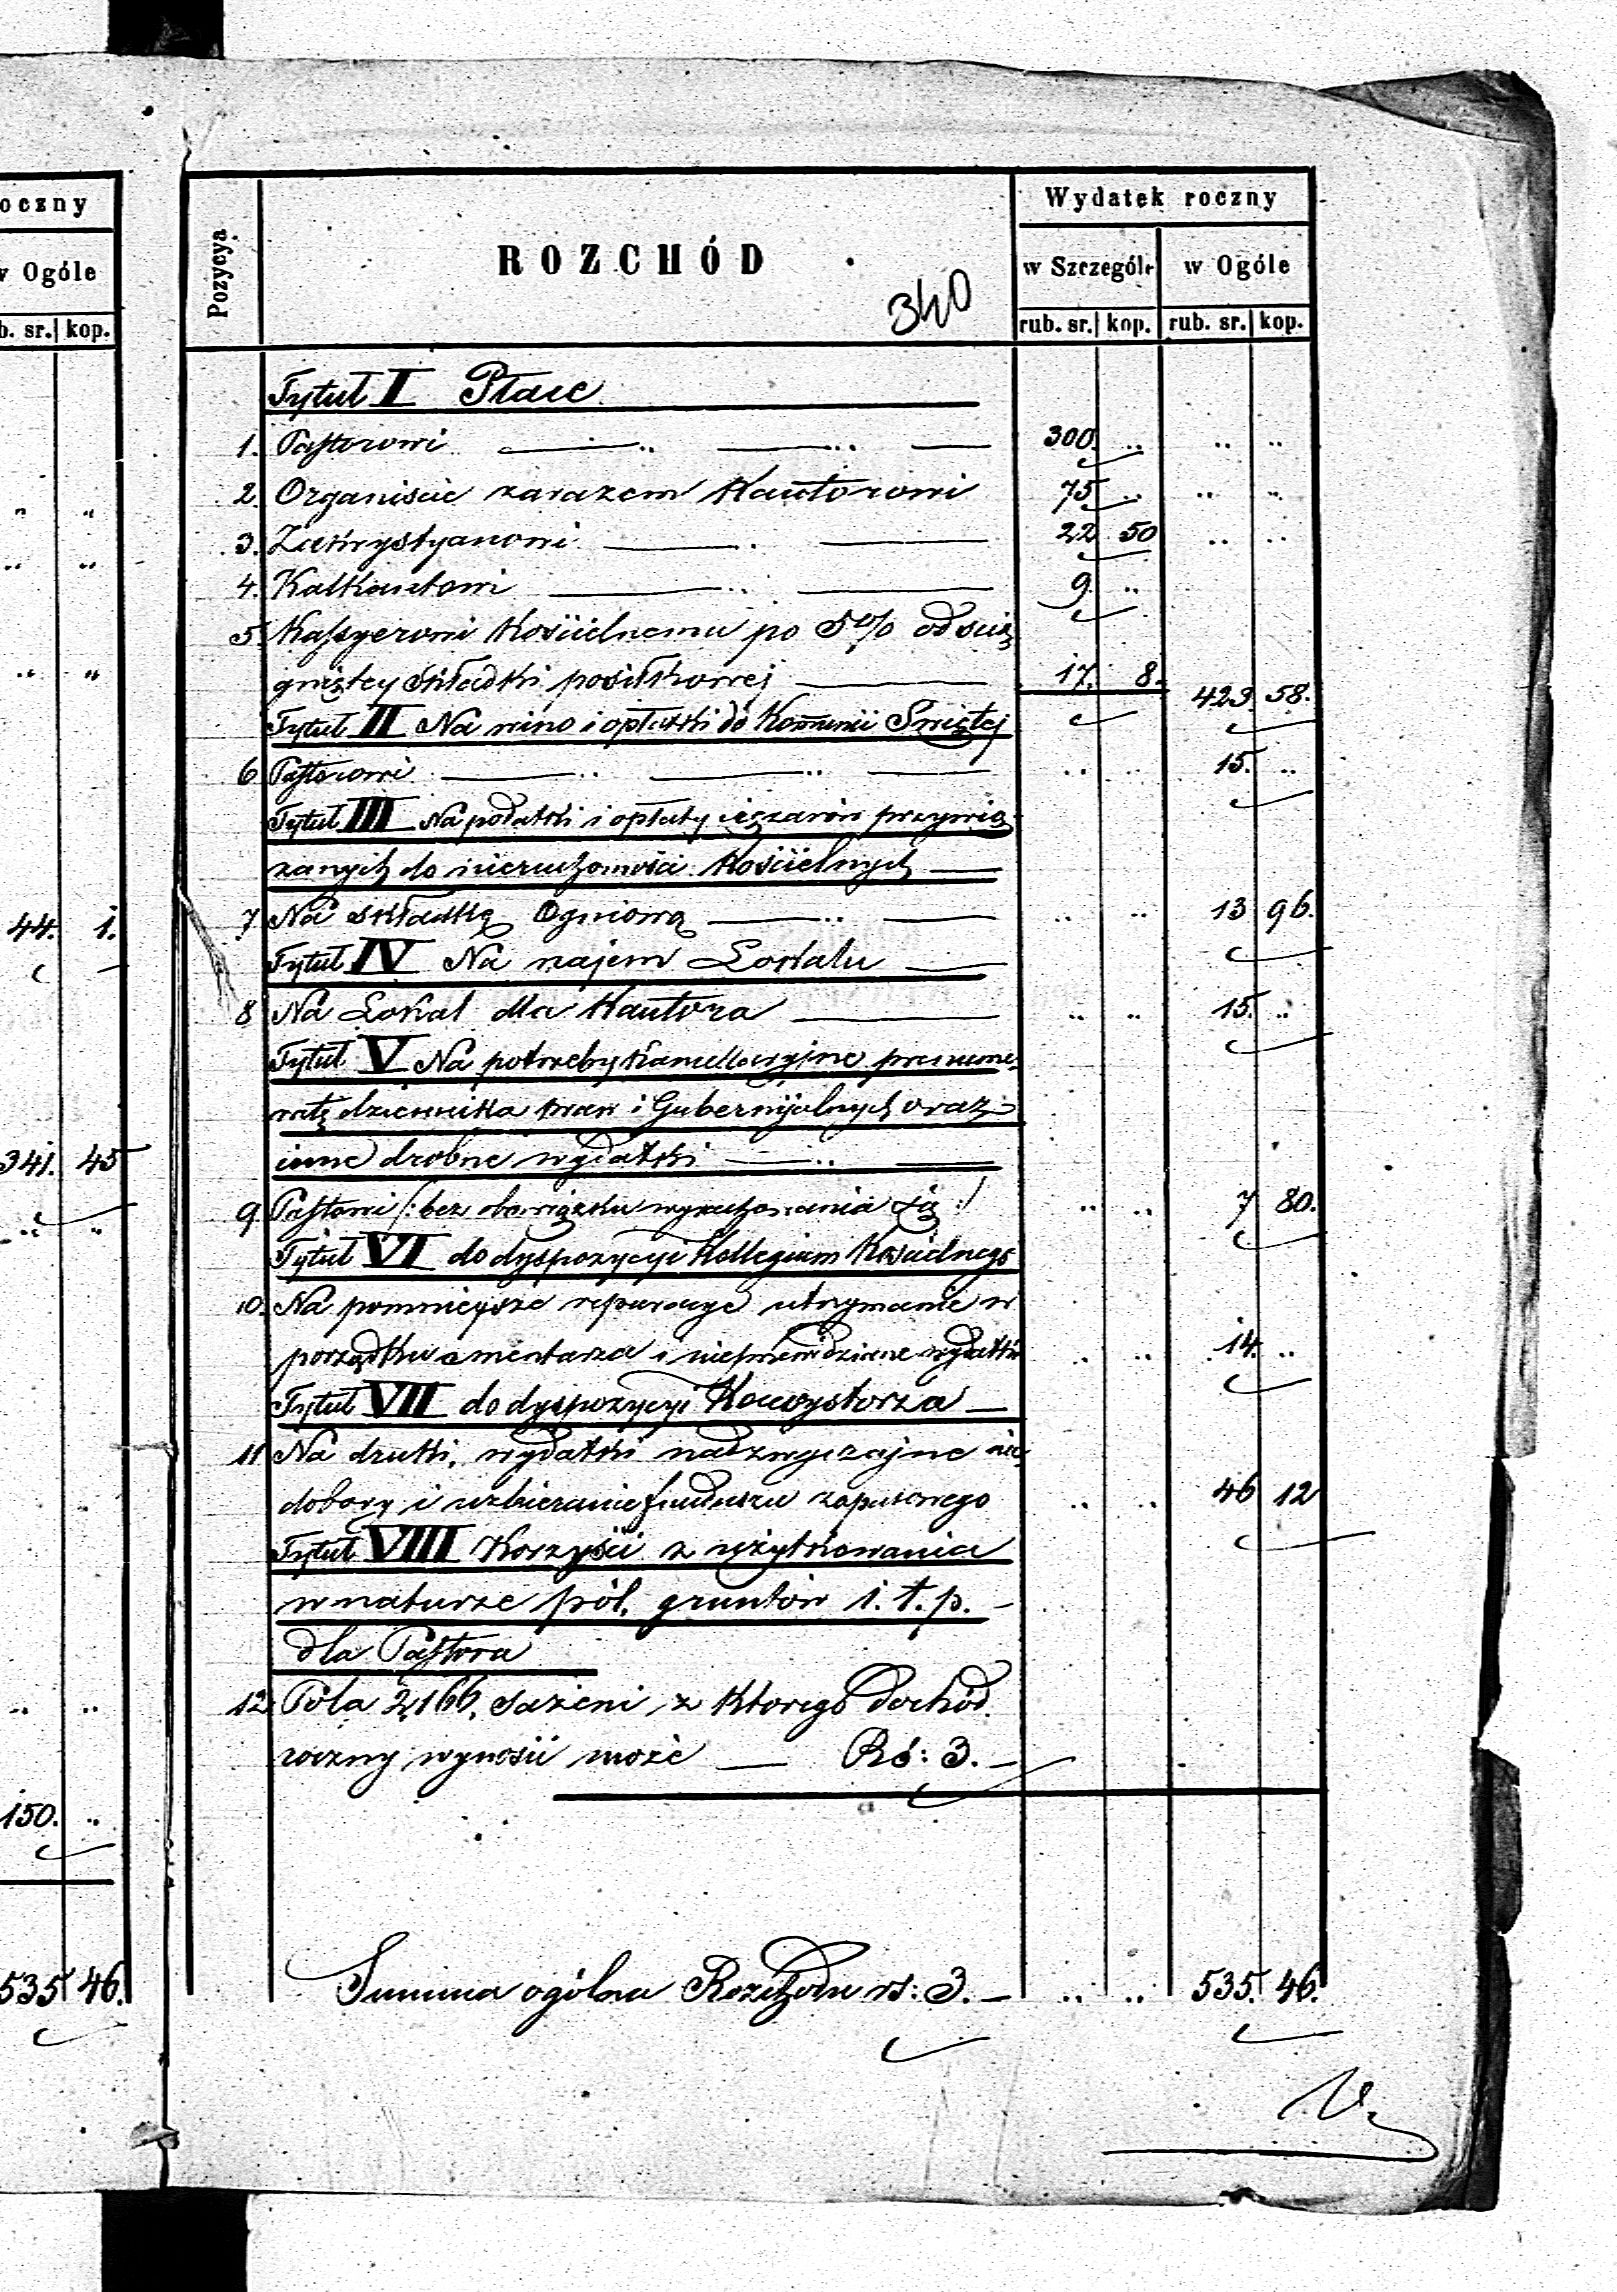 oczny
w Ogóle
b. sr. kop.
44. 1.
341. 45
150. ..
535 46.
Pozycya
ROZCHÓD
340
Wydatek roczny
w Szczególe w Ogóle
rub. sr. kop. rub. sr. kop.
Tytuł I Płace
1. Pastorowi 300. .. .. ..
2. Organiście zarazem Kantorowi 75 .. .. ..
3. Zakrystyanowi 22 50 .. ..
4. Kalkantowi 9. ..
5. Kassyerowi Kościelnemu po 5% od ścią
gniętey składki posiłkowej 17. 8. 423. 58.
Tytuł II Na wino i opłatki do Kommunii Swiętej
6 Pastorowi .. .. 15. ..
Tytuł III Na podatki i opłaty ciężarów przywią
zanych do nieruchomości Kościelnych
7 Na składkę Ogniową .. .. 13 96.
Tytuł IV Na najem Lokalu
8 Na Lokal dla Kantora .. .. 15. ..
Tytuł V Na potrzeby Kancellaryjne prenume-
ratę dziennika praw i Gubernijalnych oraz
inne drobne wydatki
9. Pastorowi /: bez obowiązku wyrachowania się :/ .. .. 7 80.
Tytuł VI do dyspozycyi Kollegium Kościelnego
10. Na pomniejsze reparacye utrzymanie w
porządku cmentarza i nieprzewidziane wydatki .. .. 14. ..
Tytuł VII do dyspozycyi Konsystorza
11 Na druki, wydatki nadzwyczajne nie-
dobory i uzbieranie funduszu zapasowego .. .. 46 12
Tytuł VIII Korzyści z użytkowania
w naturze pól, gruntów i. t. p. –
dla Pastora
12 Pola 2,166, sażeni, z którego dochód
roczny wynosić może — Rs: 3. –
Summa ogólna Rozchodu rs: 3. – .. .. 535. 46.